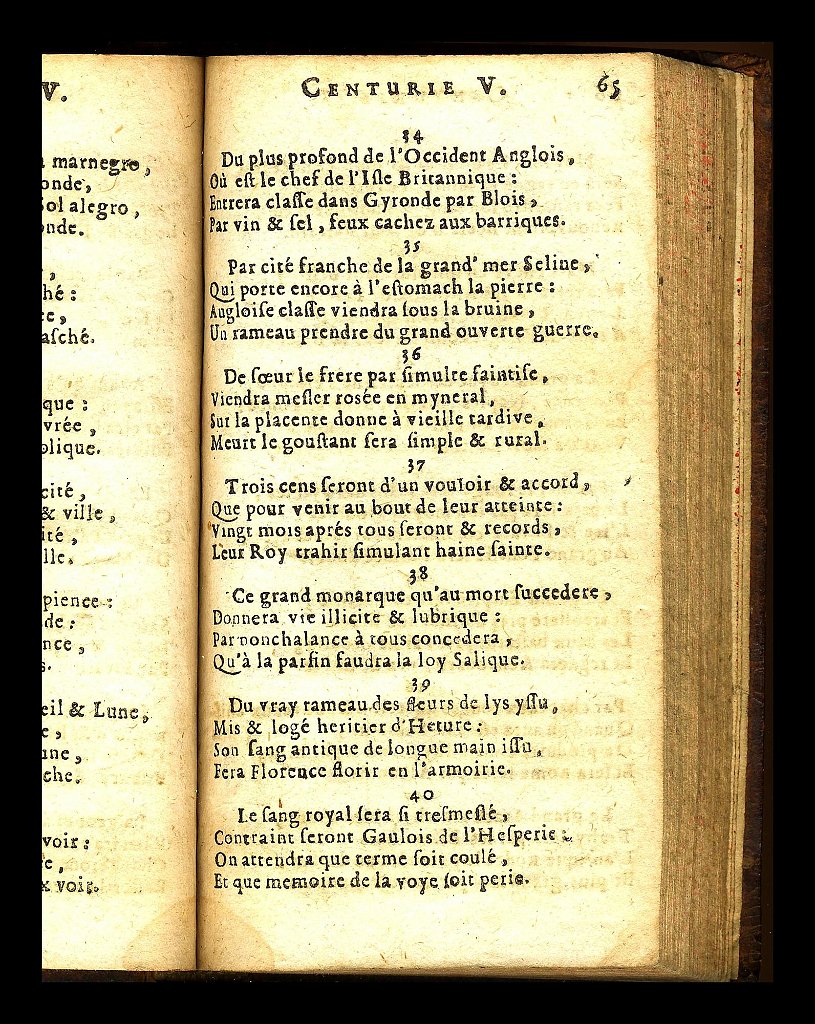 V.
marnegro,
onde,
Sol alegro,
onde.
,
hé :
ce,
aſché.
que :
vrée,
olique.
cité,
& ville,
ité,
lle.
pience :
de :
nce,
s.
eil & Lune,
e,
une,
che.
voir :
e,
x voir.
CENTURIE V. 65
34
Du plus profond de l'Occident Anglois,
Où eſt le chef de l'Iſle Britannique :
Entrera claſſe dans Gyronde par Blois,
Par vin & ſel, feux cachez aux barriques.
35
Par cité franche de la grand' mer Seline,
Qui porte encore à l'eſtomach la pierre :
Angloiſe claſſe viendra ſous la bruine,
Un rameau prendre du grand ouverte guerre.
36
De sœur le frere par ſimulte faintiſe,
Viendra meſler rosée en myneral,
Sur la placente donne à vieille tardive,
Meurt le gouſtant ſera ſimple & rural.
37
Trois cens ſeront d'un vouloir & accord,
Que pour venir au bout de leur atteinte :
Vingt mois aprés tous ſeront & records,
Leur Roy trahir ſimulant haine fainte.
38
Ce grand monarque qu'au mort ſuccedere,
Donnera vie illicite & lubrique :
Par nonchalance à tous concedera,
Qu'à la parfin faudra la loy Salique.
39
Du vray rameau des fleurs de lys yſſu,
Mis & logé heritier d'Heture :
Son ſang antique de longue main iſſu,
Fera Florence florir en l'armoirie.
40
Le ſang royal ſera ſi treſmeſlé,
Contraint ſeront Gaulois de l'Heſperie :
On attendra que terme ſoit coulé,
Et que memoire de la voye ſoit perie.